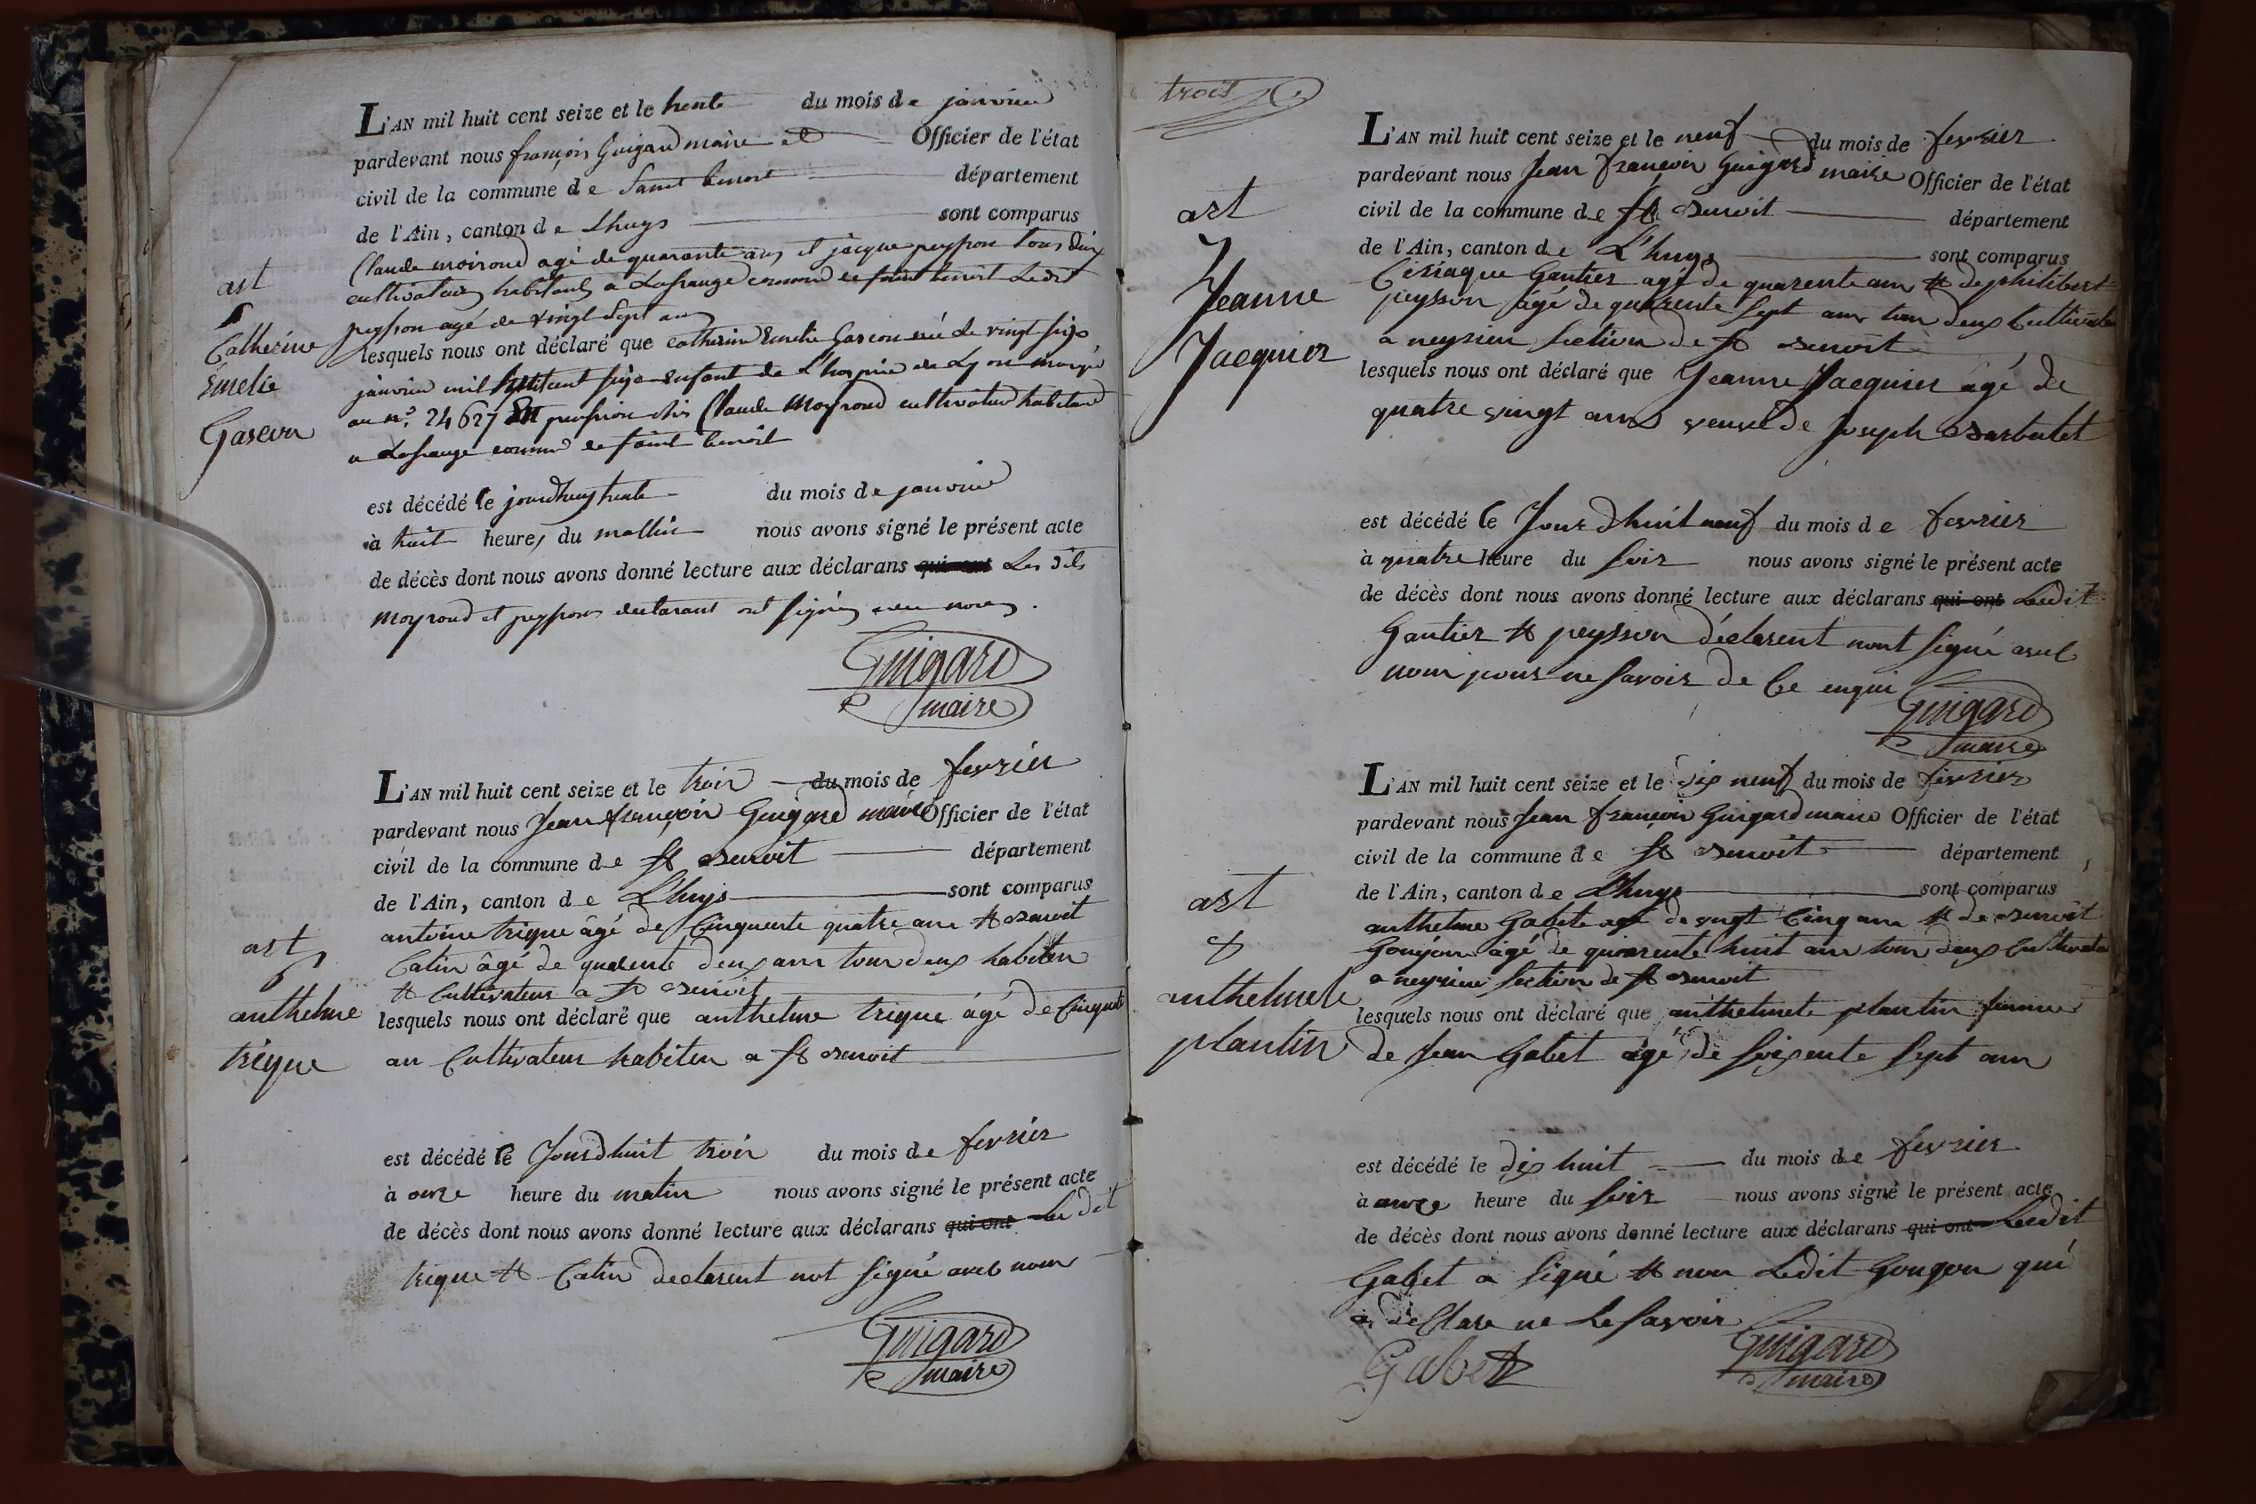 L'AN mil huit cent seize et le trente du mois de janvier
pardevant nous françois Guigard maire et Officier de l'état
civil de la commune de Saint benoit département
de l'Ain, canton de Lhuys sont comparus
Claude moiroud agé de quarante ans et jacque peysson tous deux
cultivateurs habitants a Lafrange commune de saint benoit Ledit
peysson agé de vingt sept ans
art
Catherine
Emelie
Gascon
lesquels nous ont déclaré que catherine Emelie Gascon née le vingt six
janvier mil huit cent seize enfant de L'hospice de Lyon marqué
au n.° 24627 en pension chés Claude Moyroud cultivateur habitant
a Lafrange commune de saint benoit
est décédé le jourdhuy trente du mois de janvier
à huit heures du mattin nous avons signé le présent acte
de décès dont nous avons donné lecture aux déclarans qui ont Les dits
Moyroud et peysson declarant ont signés avec nous.
Guigard
maire
L'AN mil huit cent seize et le trois du mois de fevrier
pardevant nous Jean françois Guigard maire Officier de l'état
civil de la commune de St Benoit département
de l'Ain, canton de L'huys sont comparus
antoine trique âgé de Cinquente quatre ans et Benoit
Catin âgé de quarente deux ans tous deux habiten
et Cultivateur a St Benoit
art
anthelme
trique
lesquels nous ont déclaré que anthelme trique âgé de Cinquente
an Cultivateur habiten a St Benoit
est décédé le Jourdhuit trois du mois de fevrier
à onze heure du matin nous avons signé le présent acte
de décès dont nous avons donné lecture aux déclarans qui ont Ledit
trique et Catin declarent not signé avec nous
Guigard
maire
trois
L'AN mil huit cent seize et le neuf du mois de fevrier
pardevant nous Jean françois Guigard maire Officier de l'état
civil de la commune de St Benoit département
de l'Ain, canton de L'huys sont comparus
Ciriaque Gautier agé de quarente ans et de philibert
peysson âgé de quarente sept ans tous deux Cultivateur
a neyrieu section de St Benoit
art
Jeanne
Jacquier
lesquels nous ont déclaré que Jeanne Jacquier âgé de
quatre vingt ans veuve de Joseph Barbalet
est décédé le Jour dhuit neuf du mois de fevrier
à quatre heure du soir nous avons signé le présent acte
de décès dont nous avons donné lecture aux déclarans qui ont Ledit
Gautier et peysson déclarent nont signé avec
nous pour ne savoir de Ce enqui
Guigard
maire
L'AN mil huit cent seize et le dix neuf du mois de fevrier
pardevant nous Jean françois Guigard maire Officier de l'état
civil de la commune de St Benoit département
de l'Ain, canton de L'huys sont comparus
anthelme Gabet agé de vingt Cinq ans et de Benoit
Goujon âgé de quarente huit ans tous deux Cultivateur
a neyrieu section de St Benoit
art
anthelmete
plantin
lesquels nous ont déclaré que anthelmete plantin femme
de Jean Gabet âgé de soixente sept ans
est décédé le dix huit du mois de fevrier
à onze heure du soir nous avons signé le présent acte
de décès dont nous avons donné lecture aux déclarans qui ont Ledit
Gabet a signé et non Ledit Goujon qui
a déclare ne Le savoir
Gabet
Guigard
maire